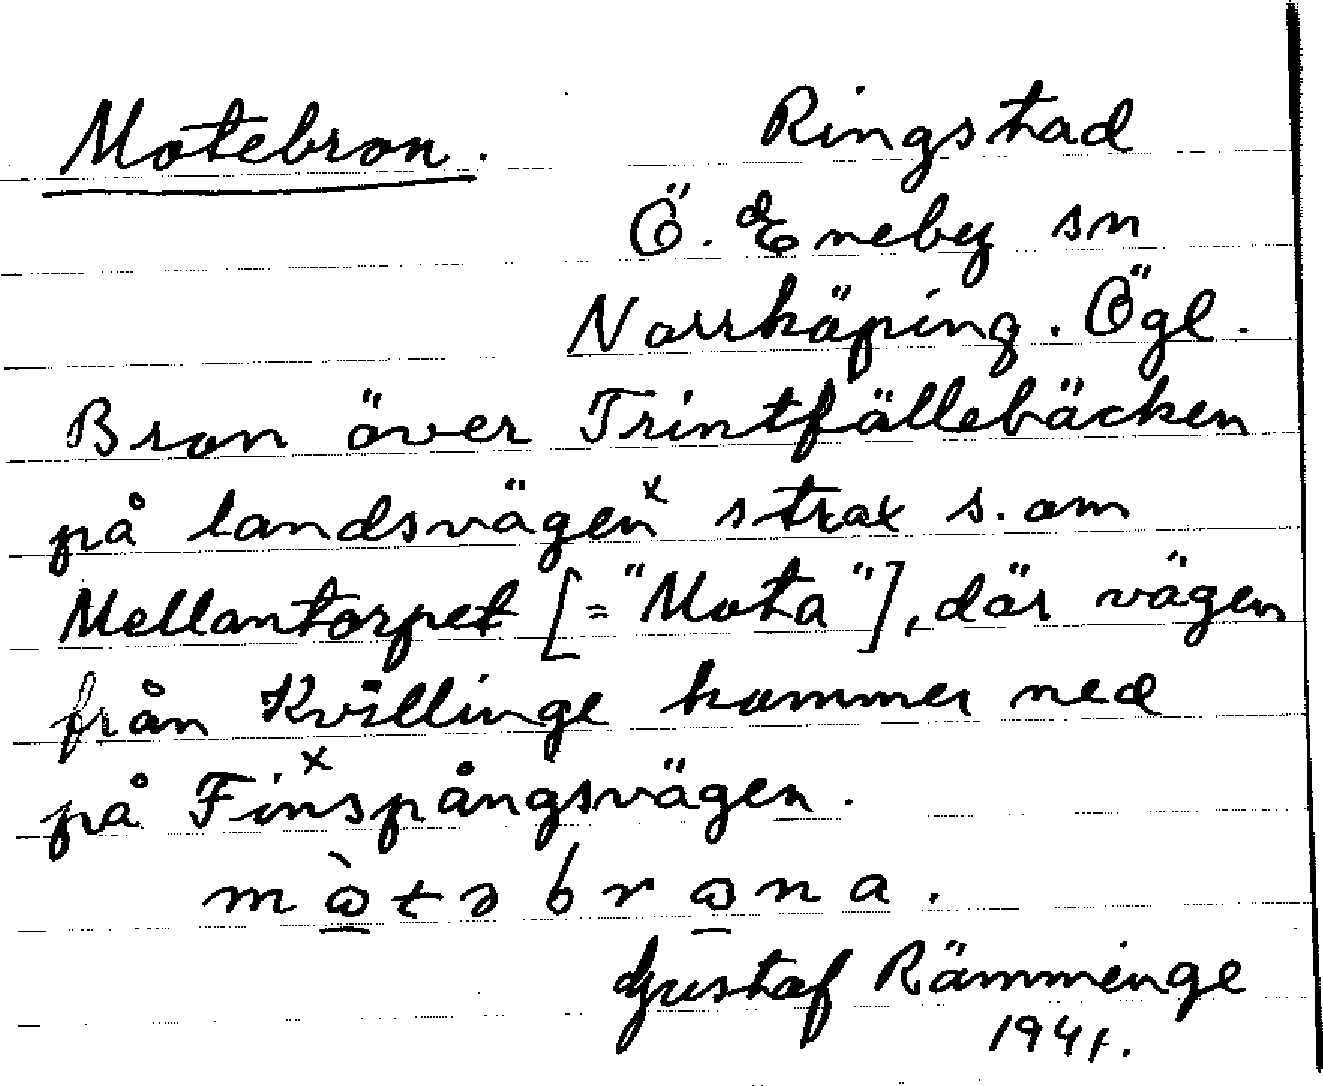 Motebron. Ringstad
Ö. Eneby sn
Norrköping. Ögl.
Bron över Trintfällebäcken
på landsvägen x strax s. om
Mellantorpet [= "Mota"], där vägen
från Kvillinge kommer ned
på x Finspångsvägen.
mɷ̀təbrɷna.
Gustaf Rämminge
1941.